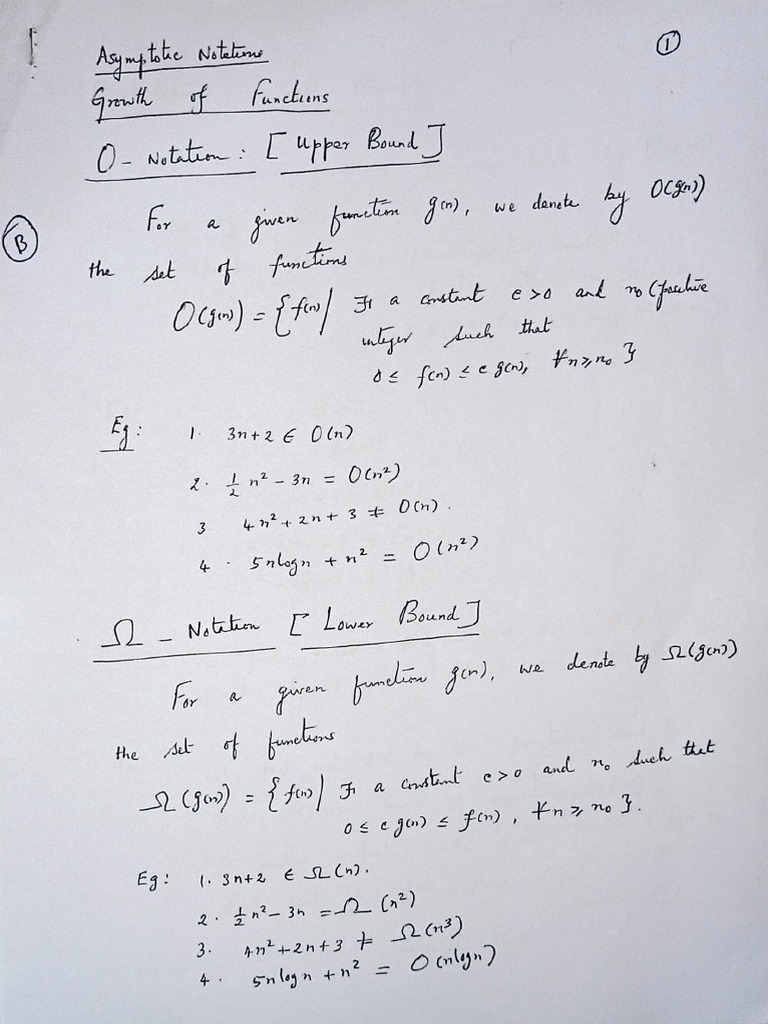 ①
Asymptotic Notations
Growth of Functions
O - Notation: [Upper Bound]
For a given function g(n), we denote by O(g(n))
Ⓑ
the set of functions
O(g(n)) = {f(n) | ∃ a constant c>0 and n₀ (positive
integer such that
0 ≤ f(n) ≤ c g(n), ∀n≥n₀}
Eg: 1. 3n+2 ∈ O(n)
2. ½ n² - 3n = O(n²)
3 4n² + 2n + 3 ≠ O(n).
4. 5nlogn + n² = O(n²)
Ω - Notation [Lower Bound]
For a given function g(n), we denote by Ω(g(n))
the set of functions
Ω(g(n)) = {f(n) | ∃ a constant c>0 and n₀ such that
0 ≤ c g(n) ≤ f(n), ∀n≥n₀}.
Eg: 1. 3n+2 ∈ Ω(n).
2. ½n² - 3n = Ω(n²)
3. 4n²+2n+3 ≠ Ω(n³)
4. 5nlogn + n² = O(nlogn)